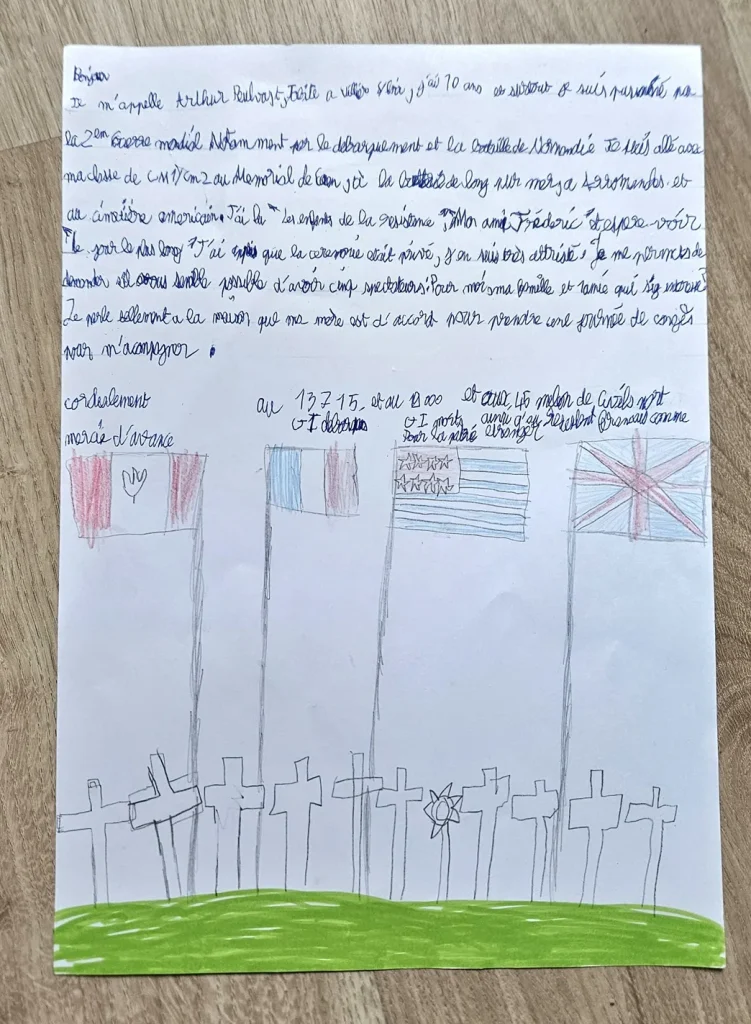 Bonjour
Je m'appelle Arthur Poulvast, j'ai 10 ans et surtout je suis passionné par
la 2em Guerre mondial Notamment par le debarquement et la bataille de Normandie Je suis allé avec
ma classe de CM1/cm2 au Memorial de Caen, la de long sur mer, a Arromandes et
au cimetière americain. J'ai lu "Les enfants de la resistance", "Mon ami Frédéric" et espere voir
"le jour le plus long" J'ai que la ceremonie etait privé, j'en suis très attristé. Je me permets de
demander vous semble possible d'avoir cinq spectateurs: Pour moi, ma famille et
Je parle tellement a la maison que ma mère est d'accort pour prendre une journée de congés
pour m'acompagner.
cordialement
mercie d'avance
au 13715, et au et aux 45 de
G I
G I morts
Pour la patrie
etranger